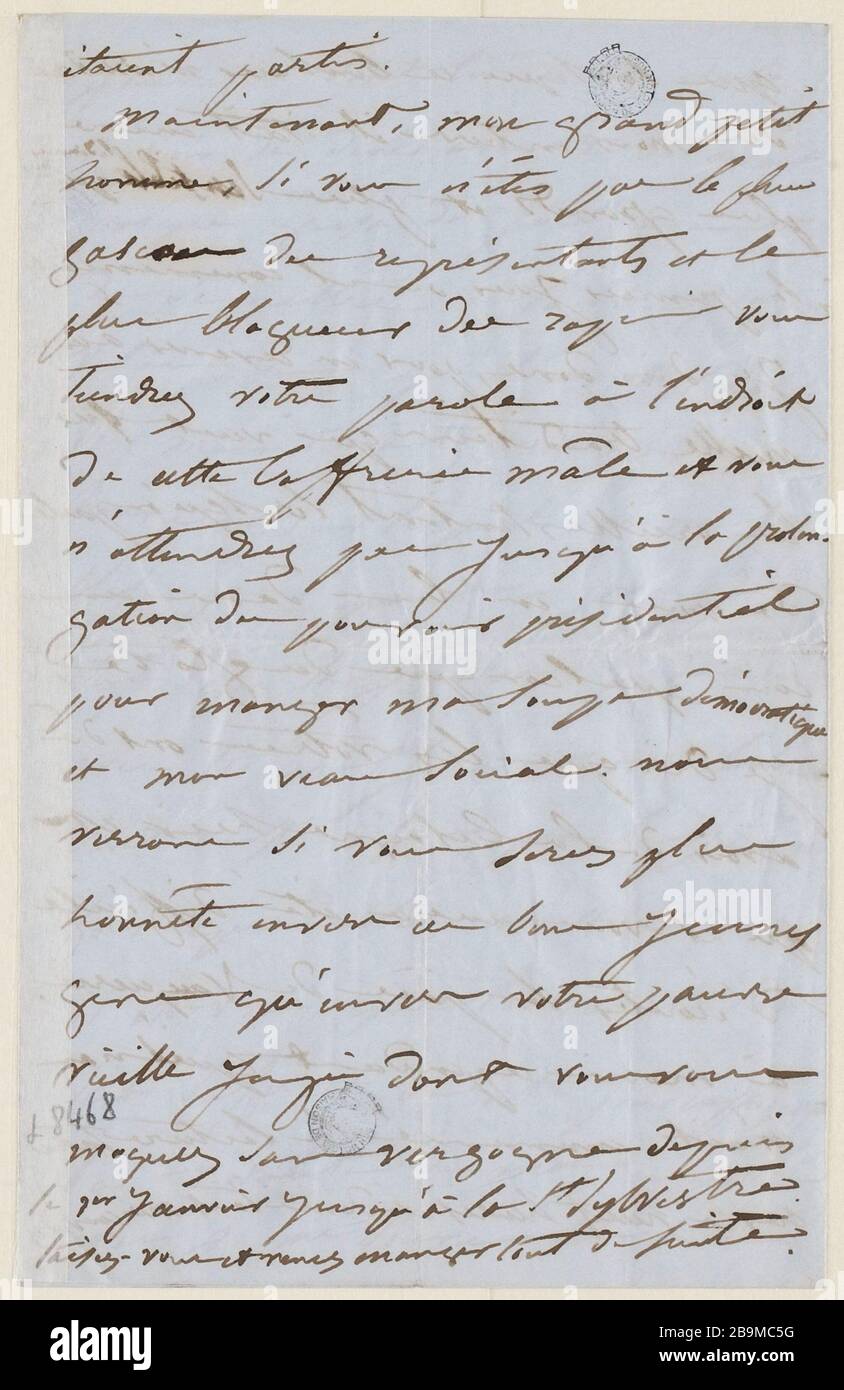 étaient partis.
Maintenant, mon grand petit
homme, si vous n'êtes pas le plus
gascon des représentants et le
plus blagueur des rapins vous
tiendrez votre parole à l'endroit
de cette mâle et vous
n'attendrez pas jusqu'à la prolon-
gation du pouvoir présidentiel
pour manger ma soupe démocratique
et mon veau social. nous
verrons si vous serez plus
honnête envers ces bons jeunes
gens qu'envers votre pauvre
vieille Juju dont vous vous
moquez sans vergogne depuis
le 1er Janvier jusqu'à la St Sylvestre.
taisez-vous et venez manger tout de suite.
L 8468
alamy
a
Image ID: 2B9MC5G
www.alamy.com